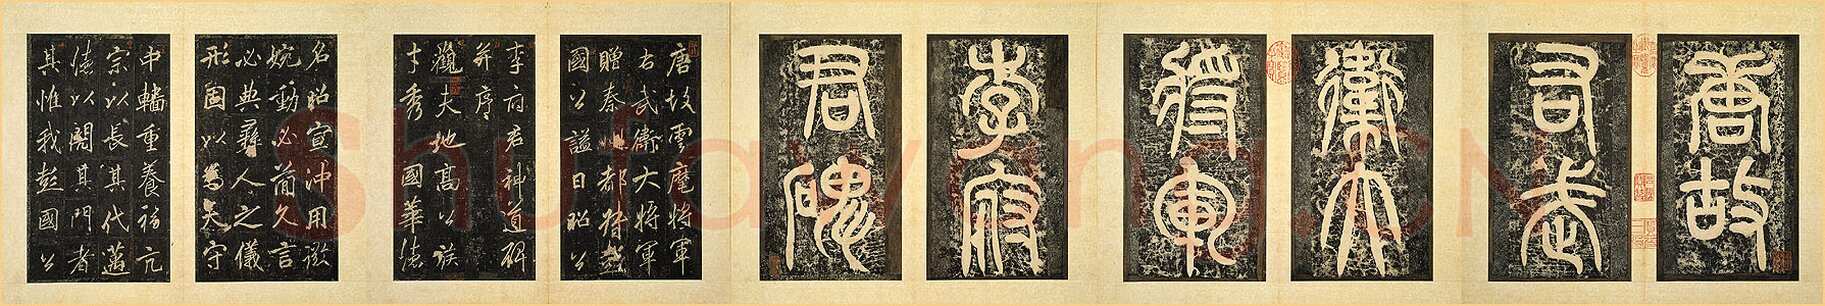 唐故
右武
衛大
將軍
李府
君碑
唐故雲麾將軍
右武衛大將軍
贈秦州都督彭
國公謚曰昭公
李府君神道碑
并序
觀夫地高公族
才秀國華德
名昭宣沖用微
婉動必簡久言
必典彝人之儀
形固以為天守
中轓重養福元
宗以長其代邁
德以閱其門者
其惟我彭國公
Shufawang.CN